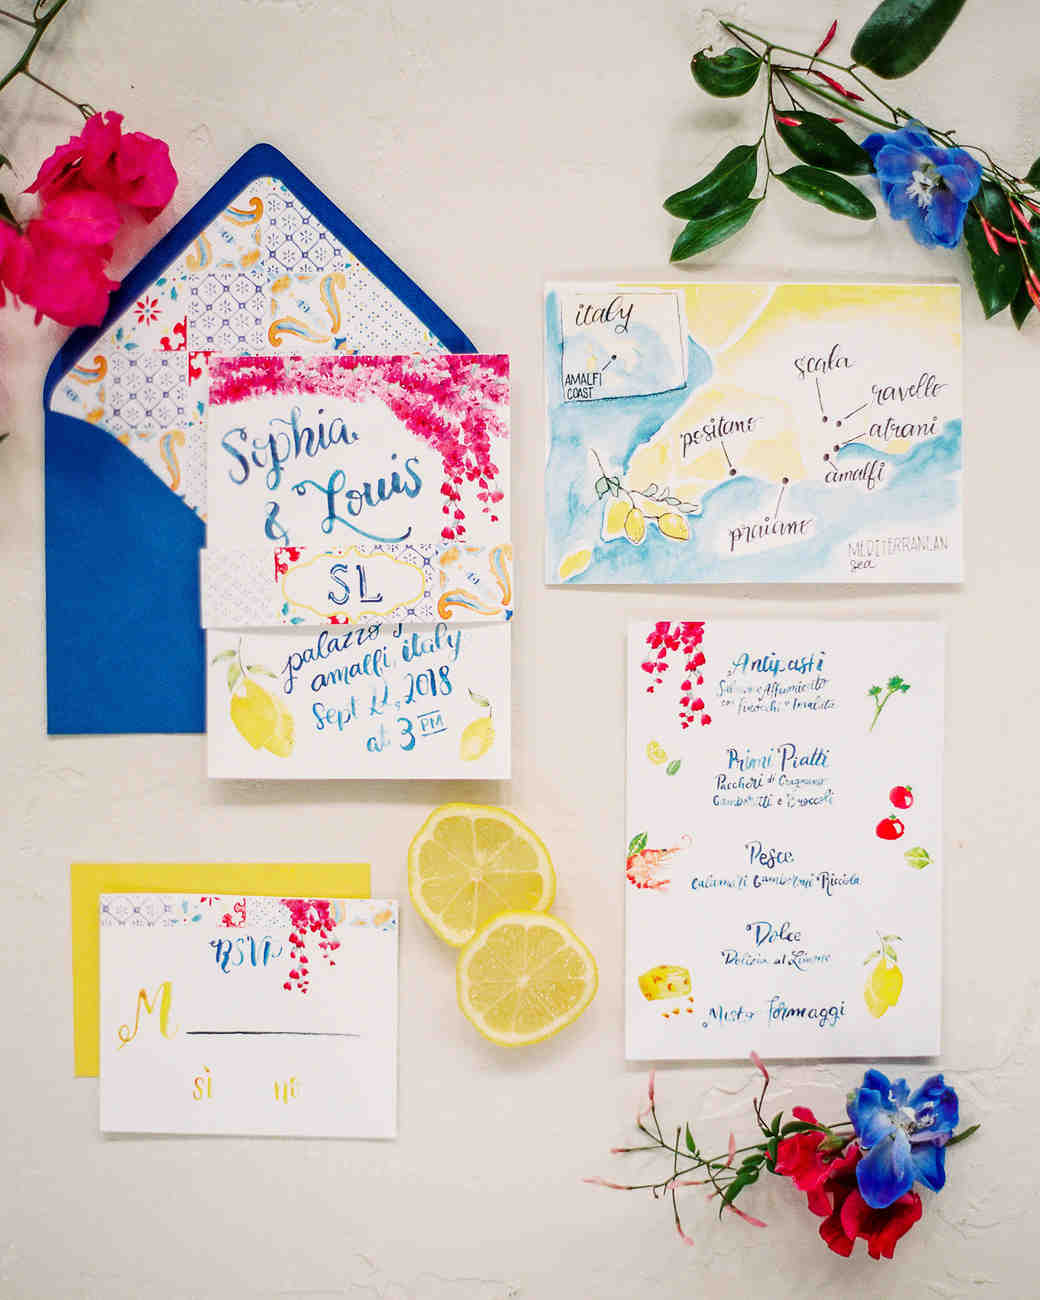 Sophia
& Louis
SL
palazzo
amalfi, italy
Sept 2018
at 3 PM
italy
AMALFI
COAST
scala
ravello
atrani
amalfi
positano
praiano
MEDITERRANEAN
sea
Antipasti
Salmone Affumicato
con Finocchi e Insalata
Primi Piatti
Paccheri di Gragnano
Gamberetti e Broccoli
Pesce
Calamari Gamberoni Ricciola
Dolce
Delizia al Limone
Misto Formaggi
RSVP
M
sì no